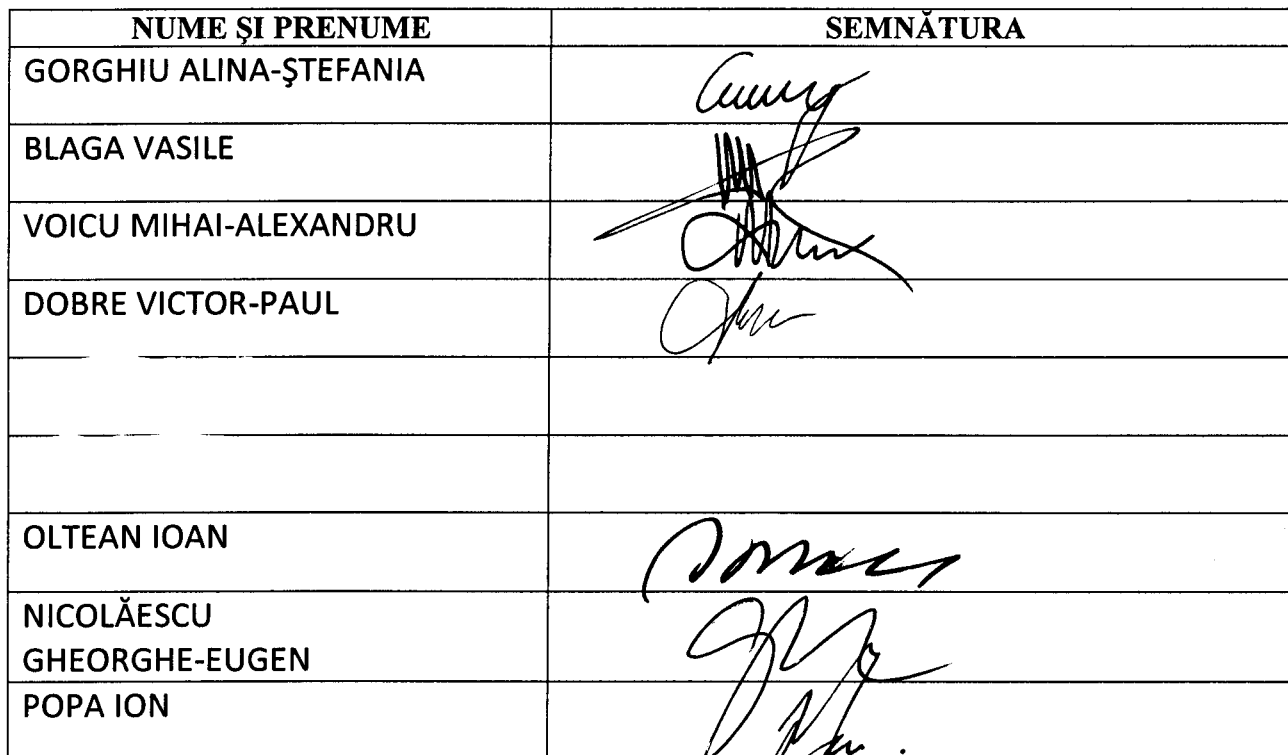 NUME ȘI PRENUME SEMNĂTURA
GORGHIU ALINA-ŞTEFANIA
BLAGA VASILE
VOICU MIHAI-ALEXANDRU
DOBRE VICTOR-PAUL
OLTEAN IOAN
NICOLĂESCU
GHEORGHE-EUGEN
POPA ION